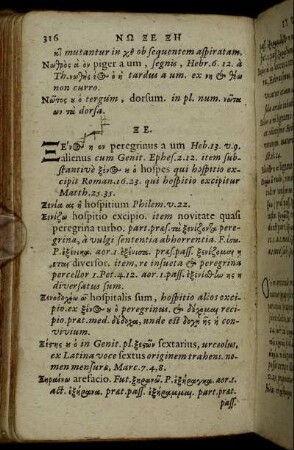 316 ΝΩ ΞΕ ΞΗ
mutantur in χθ ob sequentem aspiratam.
Νωθρὸς ὰ ὸν piger a um, segnis, Hebr. 6. 12. à
Th. tardus a um. ex νη &
non curro.
Νῶτος ου ὁ tergum, dorsum. in pl. num. νῶτα
ων τὰ dorsa.
ΞΕ.
ΞΈνος η ον peregrinus a um Heb. 13. v. 9.
alienus cum Genit. Ephes. 2. 12. item sub-
stantivè ξένος ου ὁ hospes qui hospitio ex-
cipit Roman. 16. 23. qui hospitio excipitur
Matth. 25. 35.
Ξενία ας ἡ hospitium Philem. v. 22.
Ξενίζω hospitio excipio. item novitate quasi
peregrina turbo. part. præs. τὰ ξενίζοντα pere-
grina, à vulgi sententia abhorrentia. F. ίσω.
P. ἐξένικα. aor. 1. ἐξένισα. præs. pass. ξενίζομαι η
εται diversor. item, re insueta & peregrina
percellor 1. Pet. 4. 12. aor. 1. pass. ἐξενίσθην ης η
diversatus sum.
Ξενοδοχέω ῶ hospitalis sum, hospitio alios exci-
pio. ex ξένος ου ὁ peregrinus. & δέχομαι reci-
pio, præt. med. δέδοχα, unde est δοχὴ ῆς ἡ con-
vivium.
Ξέστης ου ὁ in Genit. pl. ξεστῶν sextarius, urceolus,
ex Latina voce sextus originem trahens. no-
men mensuræ, Marc. 7. 4, 8.
Ξηραίνω arefacio. Fut. ξηρανῶ. P. ἐξήραγκα. aor. 1.
act. ἐξήρανα. præt. pass. ἐξήραμμαι. part. præt.
pass.